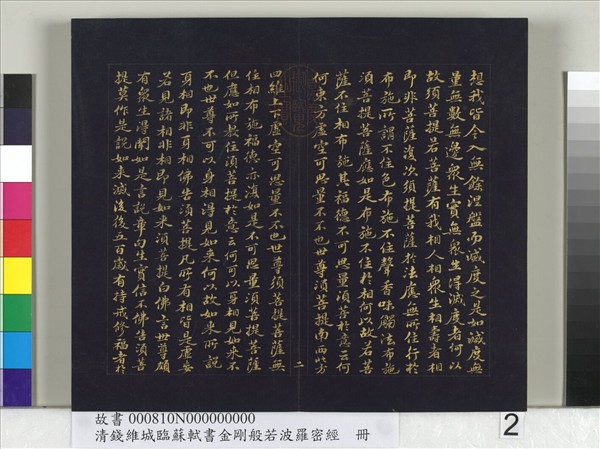 想我皆令入無餘涅槃而滅度之是如滅度無
量無數無邊眾生實無眾生得滅度者何以
故須菩提若菩薩有我相人相眾生相壽者相
即非菩薩復次須菩提菩薩於法應無所住行於
布施所謂不住色布施不住聲香味觸法布施
須菩提菩薩應如是布施不住於相何以故若菩
薩不住相布施其福德不可思量須菩提於意云
何東方虛空可思量不不也世尊須菩提南西北方
二
四維上下虛空可思量不不也世尊須菩提菩薩無
住相布施福德亦復如是不可思量須菩提菩薩
但應如所教住須菩提於意云何可以身相見如來不
不也世尊不可以身相得見如來何以故如來所說
身相即非身相佛告須菩提凡所有相皆是虛妄
若見諸相非相即見如來須菩提白佛言世尊頗
有眾生得聞如是言說章句生實信不佛告須菩
提莫作是說如來滅後後五百歲有持戒修福者於
故書 000810N000000000
清錢維城臨蘇軾書金剛般若波羅密經 冊
2